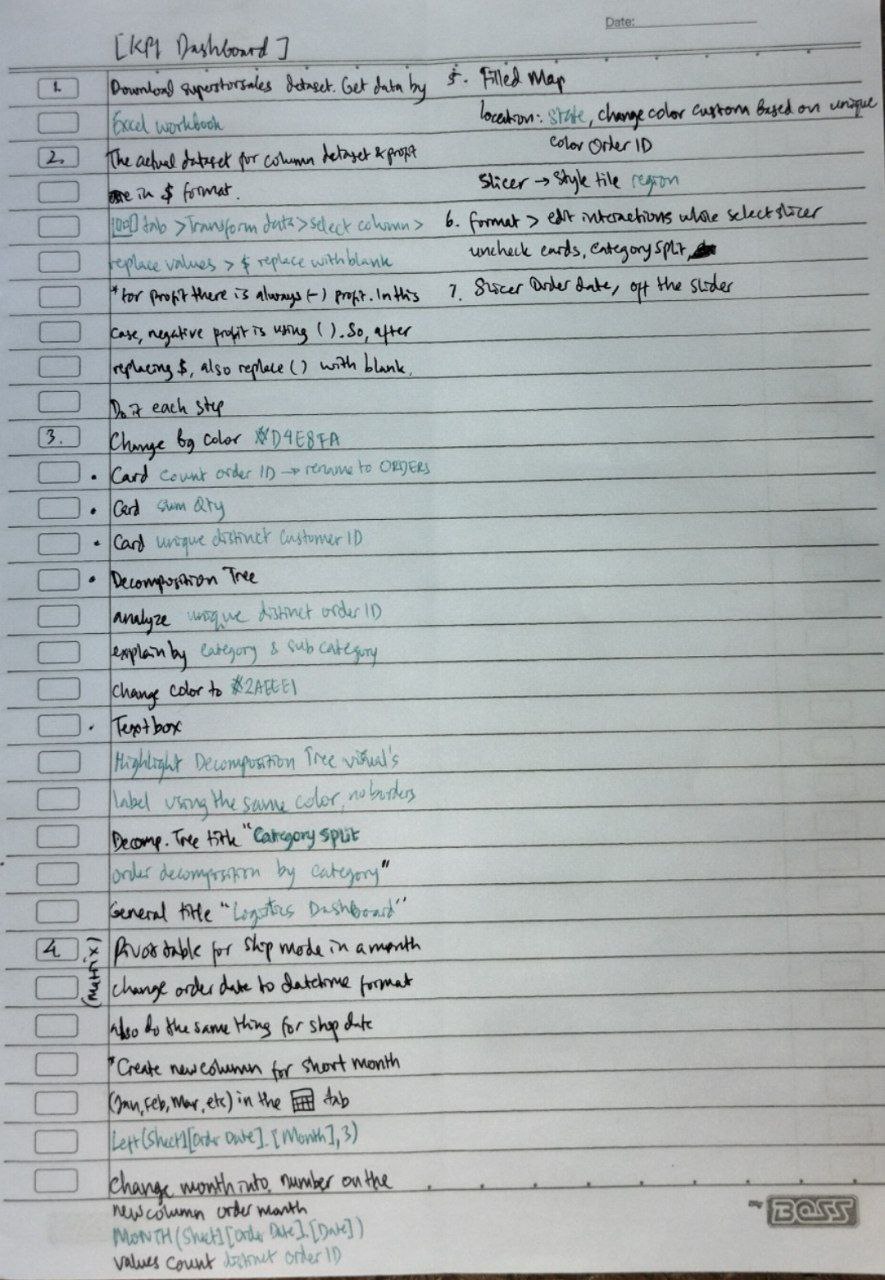 Date:
[KPI Dashboard]
1. Download superstorsales dataset. Get data by
Excel workbook
2. The actual dataset for column dataset & profit
are in $ format.
tab > Transform data > select column >
replace values > $ replace with blank
*for profit there is always (-) profit. In this
case, negative profit is using ( ). So, after
replacing $, also replace ( ) with blank.
Do it each step
3. Change bg color #D4E8FA
• Card count order ID → rename to ORDERS
• Card sum Qty
• Card unique distinct Customer ID
• Decomposition Tree
analyze unique distinct order ID
explain by category & sub category
change color to #2AEEE1
• Text box
Highlight Decomposition Tree visual's
label using the same color, no borders
Decomp. Tree title "Category Split
order decomposition by Category"
General title "Logistics Dashboard"
4. (Matrix) Pivot table for ship mode in a month
change order date to datetime format
also do the same thing for ship date
*Create new column for short month
(Jan, Feb, Mar, etc) in the tab
Left(Sheet1[Order Date].[Month],3)
change month into number on the
new column order month
MONTH(Sheet1[Order Date].[Date])
values count distinct order ID
5. Filled Map
location: state, change color custom based on unique
color Order ID
Slicer → Style tile region
6. format > edit interactions while select slicer
uncheck cards, category split,
7. Slicer Order date, off the slider
BOSS